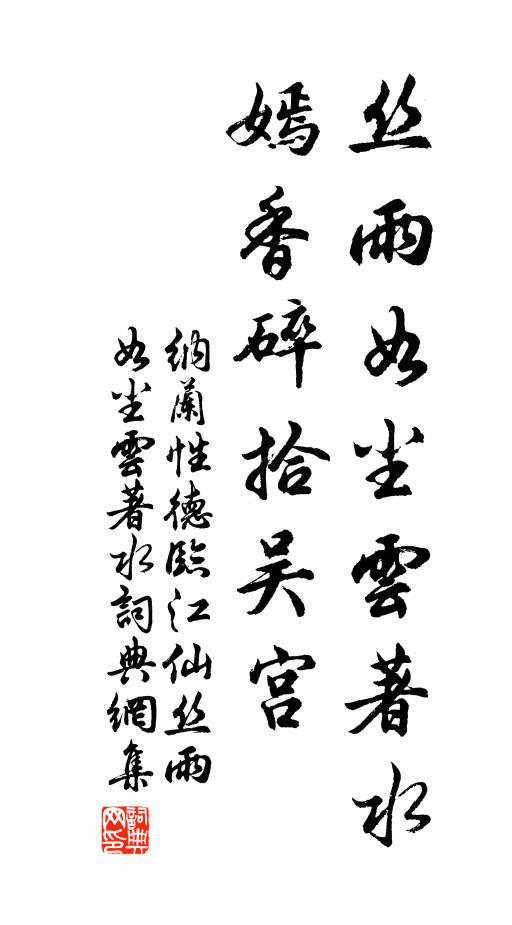 丝雨如尘雲著水
嫣香碎拾吴宫
纳蘭性德臨江仙丝雨
如尘雲著水詞典網集
詞典网印